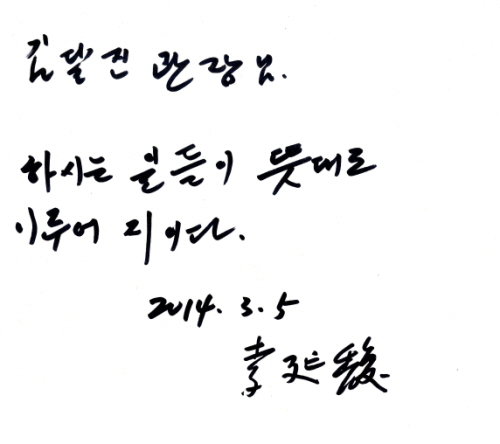 김달진 관장님.
하시는 일들이 뜻대로
이루어 지이다.
2014. 3. 5
李廷馥